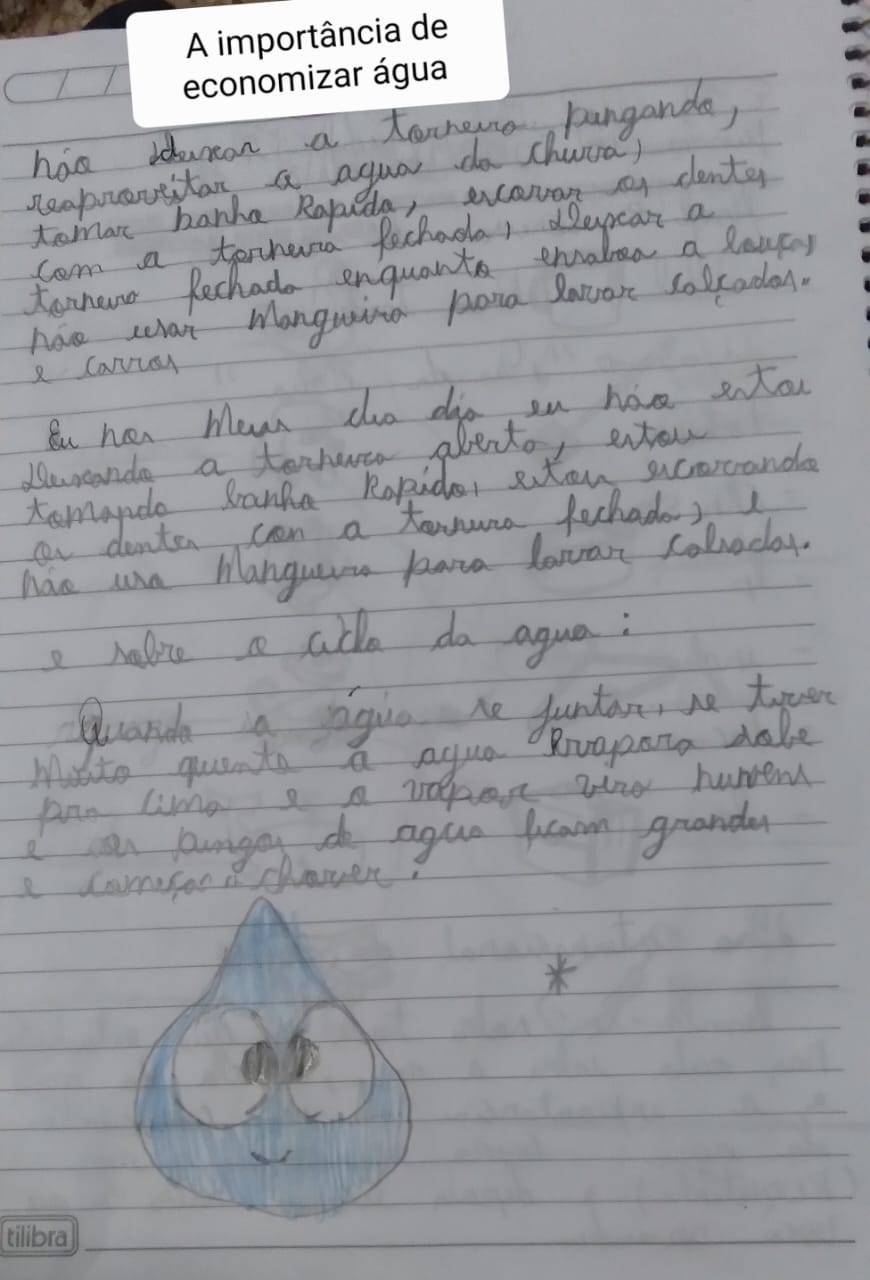 A importância de
economizar água
não deixar a torneira pingando,
reaproveitar a agua da chuva,
tomar banho Rapido, escovar os dentes
com a torneira fechada, deixar a
torneira fechada enquanto ensaboa a louça,
não usar Mangueira para lavar calçadas.
e carros
Eu nos Meus dia dia eu não estou
deixando a torneira aberta, estou
tomando banho Rapido, estou escovando
os dentes con a torneira fechada, e
não uso Mangueira para lavar calsadas.
e sobre o ciclo da agua:
Quando a água se juntar, se tiver
Muito quente a agua Evapora sobe
pra cima e o vapor vira nuvens
e os pingos de agua ficam grandes
e começa a chover.
*
tilibra